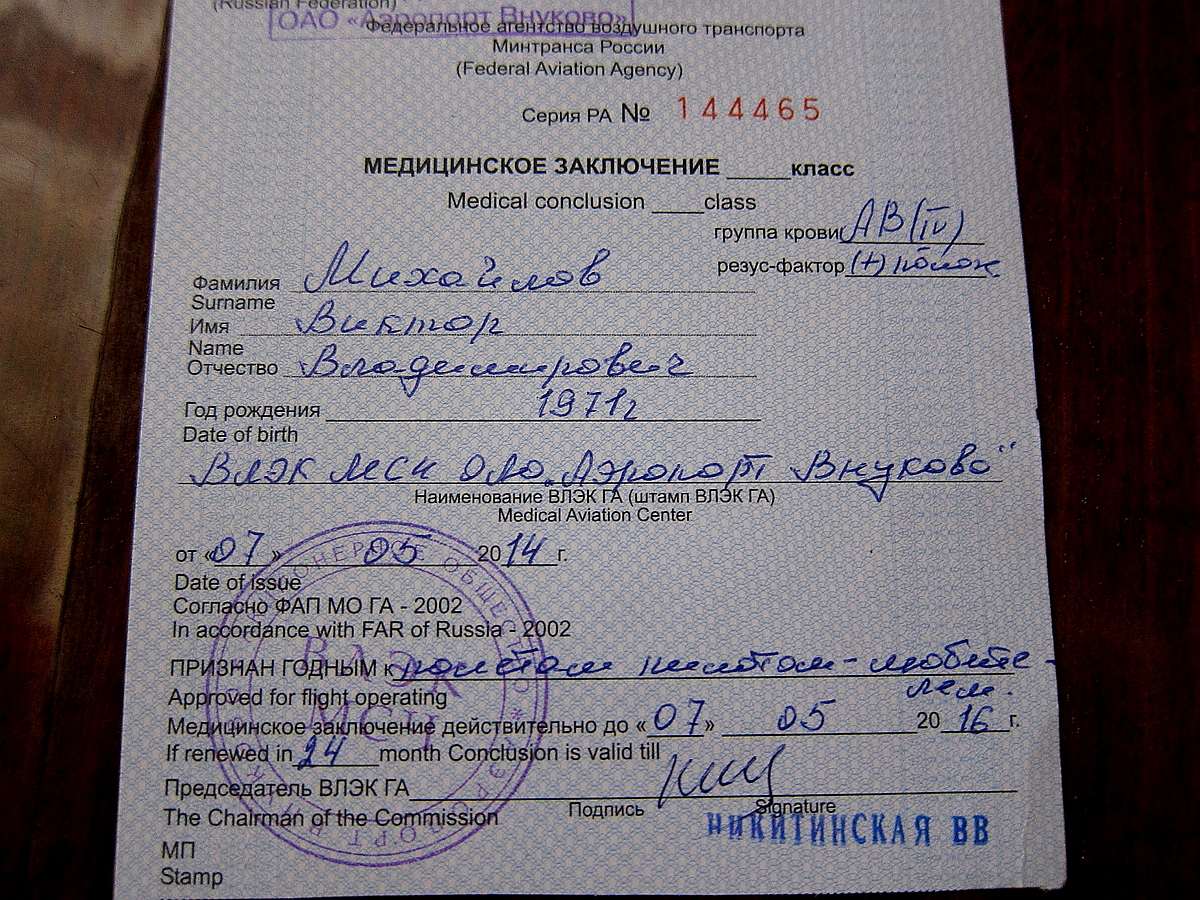 (Russian Federation)
ОАО «Аэропорт Внуково»
Федеральное агентство воздушного транспорта
Минтранса России
(Federal Aviation Agency)
Серия РА № 144465
МЕДИЦИНСКОЕ ЗАКЛЮЧЕНИЕ _____класс
Medical conclusion ____class
группа крови AB (IV)
резус-фактор (+) полож
Фамилия Михайлов
Surname
Имя Виктор
Name
Отчество Владимирович
Год рождения 1971г
Date of birth
ВЛЭК МСЧ ОАО „Аэропорт Внуково"
Наименование ВЛЭК ГА (штамп ВЛЭК ГА)
Medical Aviation Center
от «07» 05 2014 г.
Date of issue
Согласно ФАП МО ГА - 2002
In accordance with FAR of Russia - 2002
ПРИЗНАН ГОДНЫМ к полётам пилотом-любите-
лем.
Approved for flight operating
Медицинское заключение действительно до «07» 05 2016 г.
If renewed in 24 month Conclusion is valid till
Председатель ВЛЭК ГА
Подпись Signature
The Chairman of the Commission
НИКИТИНСКАЯ ВВ
МП
Stamp
ВЛЭК
МСЧ